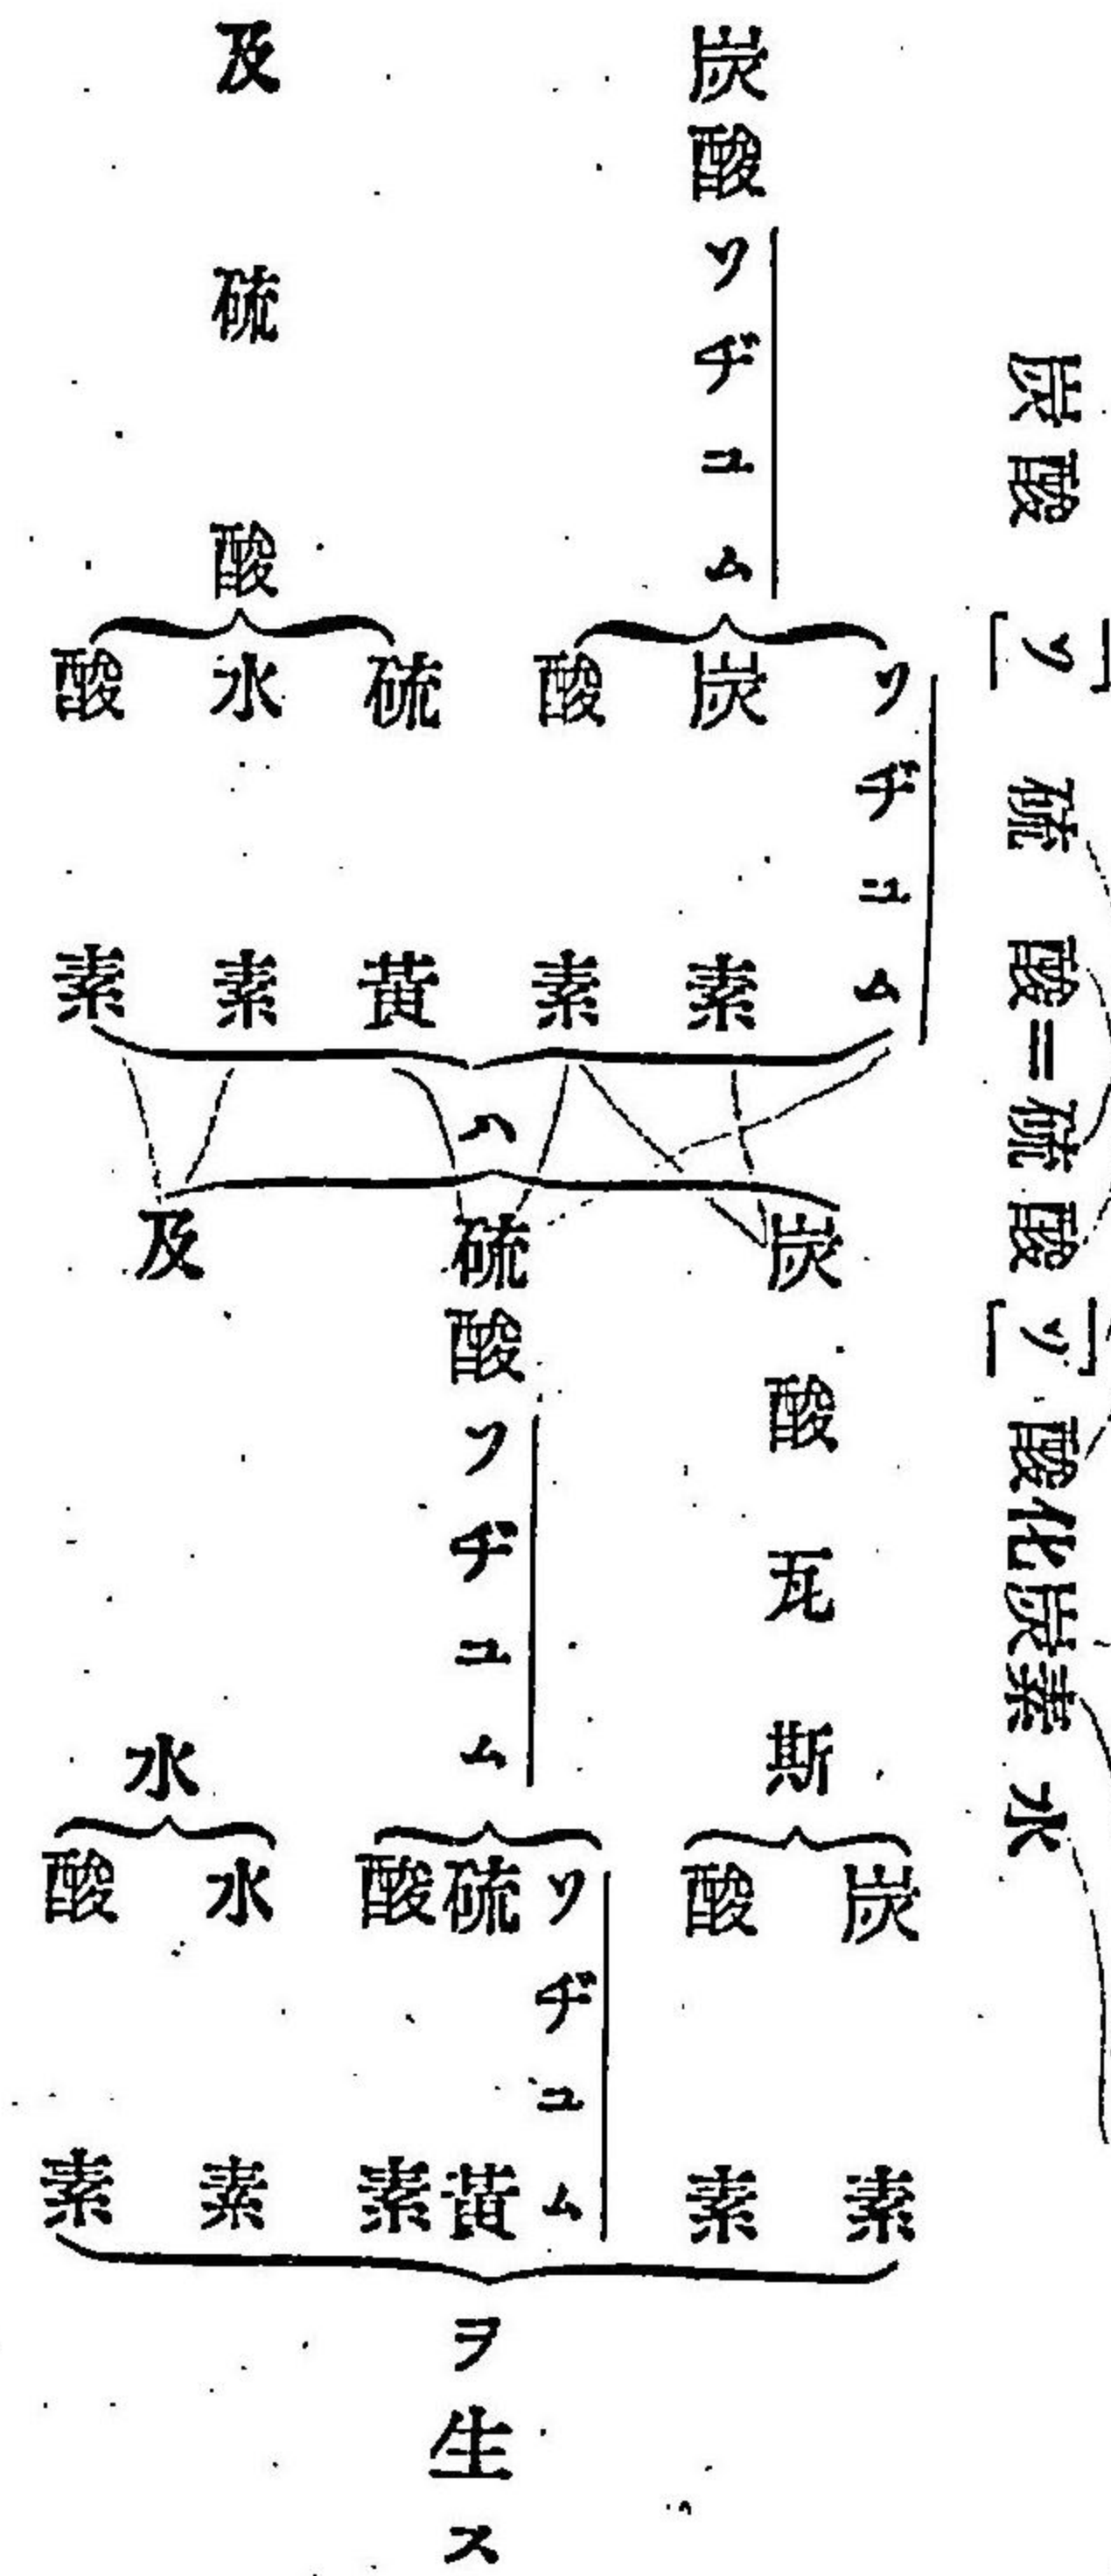 炭酸[ソ]硫酸=硫酸[ソ]酸化炭素水
炭酸ソヂユム
ソヂユム
炭素
酸素
及硫酸
硫黄
水素
酸素
ハ
炭酸瓦斯
炭素
酸素
硫酸ソヂユム
ソヂユム
硫黄
酸素
及水
水素
酸素
ヲ生ス